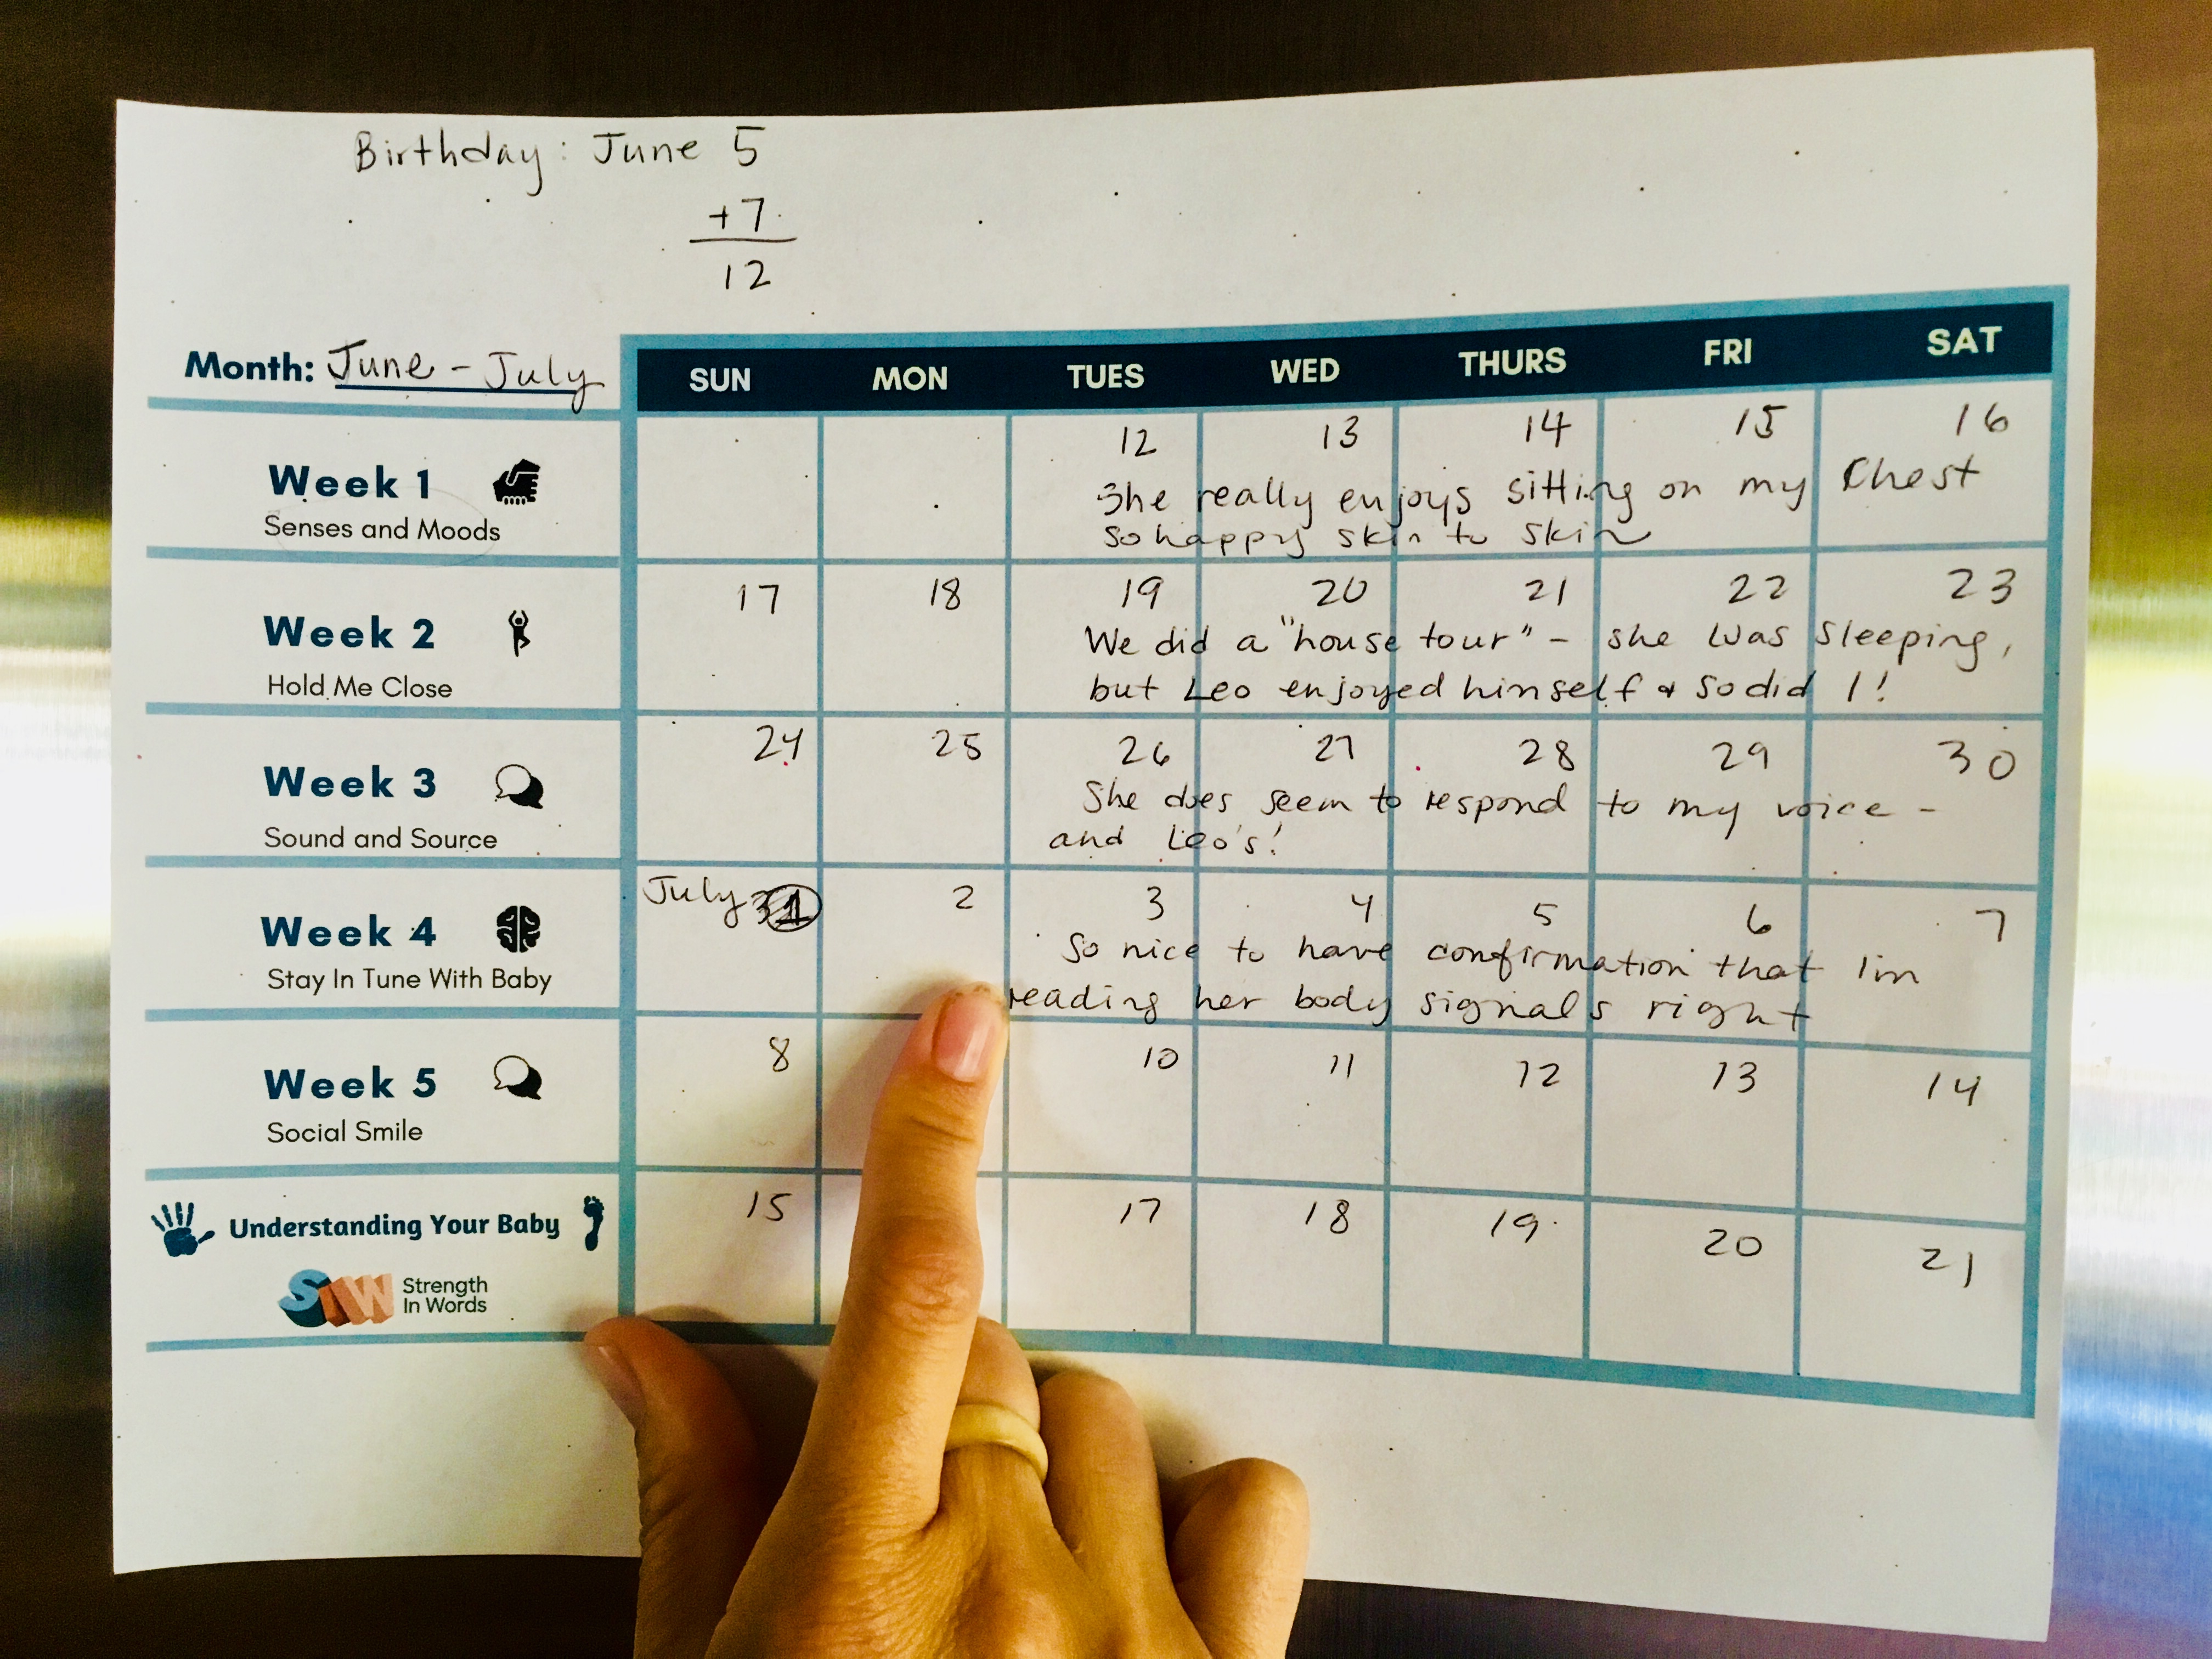 Birthday: June 5
+7
12
Month: June - July
SUN MON TUES WED THURS FRI SAT
12 13 14 15 16
Week 1
Senses and Moods
She really enjoys sitting on my chest
so happy skin to skin
17 18 19 20 21 22 23
Week 2
Hold Me Close
We did a "house tour" - she was sleeping,
but Leo enjoyed himself & so did I!
24 25 26 27 28 29 30
Week 3
Sound and Source
She does seem to respond to my voice -
and Leo's!
July 1 2 3 4 5 6 7
Week 4
Stay In Tune With Baby
So nice to have confirmation that I'm
reading her body signals right
8 10 11 12 13 14
Week 5
Social Smile
15 17 18 19 20 21
Understanding Your Baby
SIW Strength
In Words